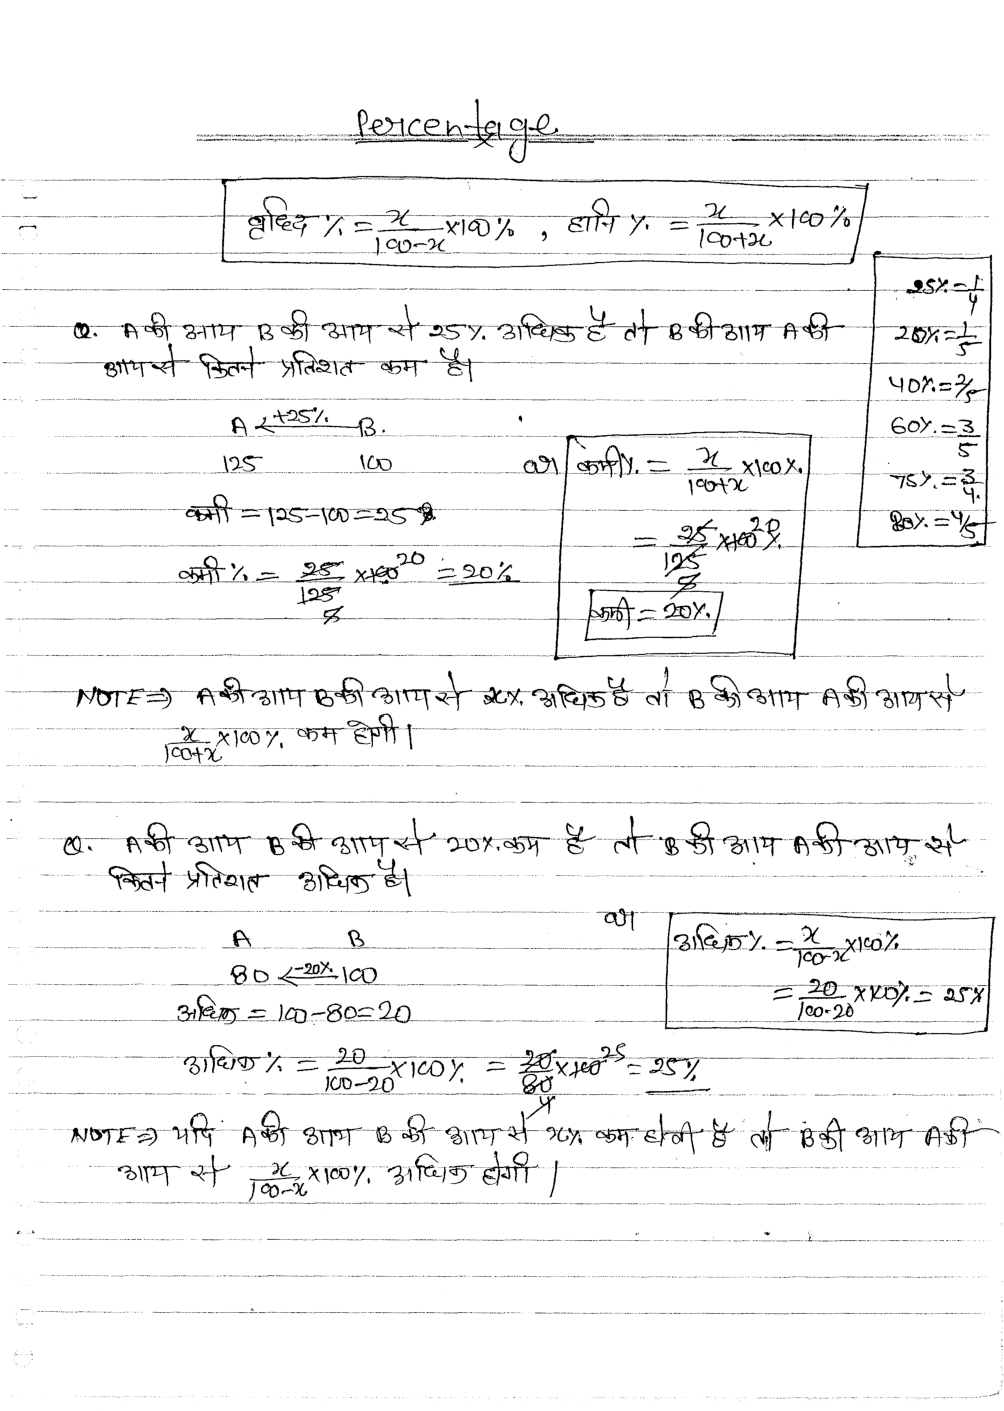 Percentage
वृध्दि % = x/(100-x) ×100% , हानि % = x/(100+x) ×100%
25% = 1/4
20% = 1/5
40% = 2/5
60% = 3/5
75% = 3/4.
80% = 4/5
Q. A की आय B की आय से 25% अधिक है तो B की आय A की
आय से कितने प्रतिशत कम है।
A ← +25% B.
125 100
कमी = 125-100 = 25
कमी % = 25/125 ×100 = 20%
वा
कमी % = x/(100+x) ×100%
= 25/125 ×100%
कमी = 20%
NOTE ⇒ A की आय B की आय से x% अधिक है तो B की आय A की आय से
x/(100+x) ×100% कम होगी।
Q. A की आय B की आय से 20% कम है तो B की आय A की आय से
कितने प्रतिशत अधिक है।
A B
80 ← -20% 100
अधिक = 100-80 = 20
वा
अधिक % = x/(100-x) ×100%
= 20/(100-20) ×100% = 25%
अधिक % = 20/(100-20) ×100% = 20/80 ×100 = 25%
NOTE ⇒ यदि A की आय B की आय से x% कम होती है तो B की आय A की
आय से x/(100-x) ×100% अधिक होगी।